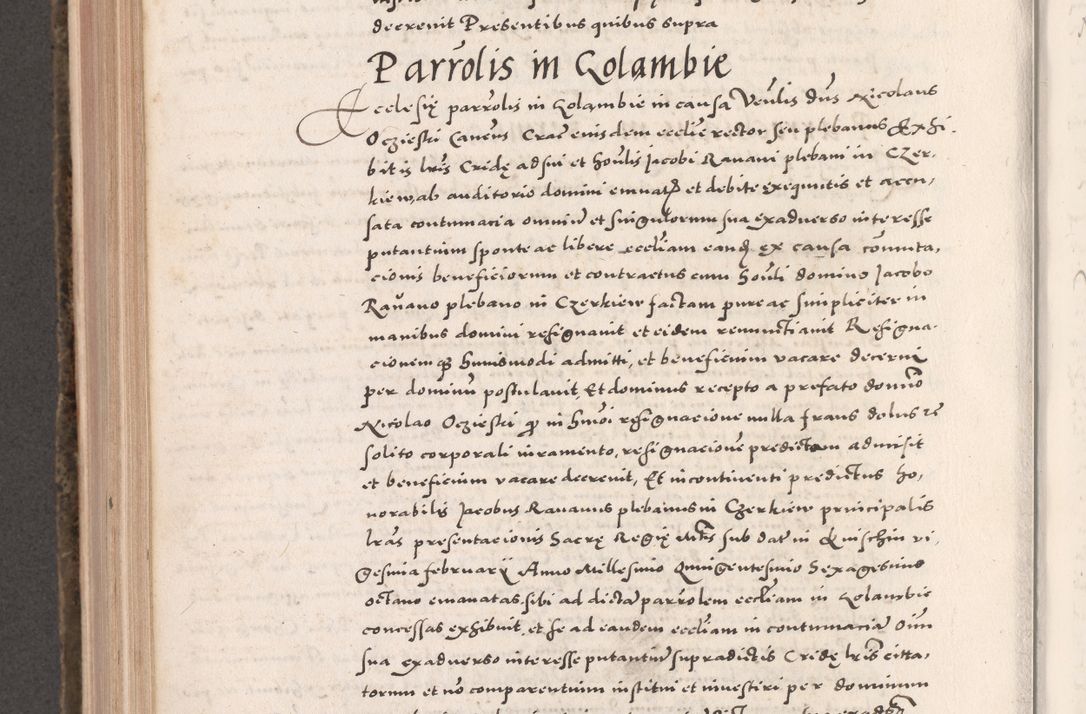 decrevit Presentibus quibus supra
Parrolis in Golambie
Ecclesię parrolis in Golambie in causa Venlis dns Nicolaus
Oczieski Cancus Crac eiusdem ecclie rector seu plebanus Exhi-
bitis lris Cridę ad sui et honlis Jacobi Ravani plebani in Czer-
kiew, ab auditorio domini emnatis et debite exequutis et accu,
sata contumacia omniu et singulorum sua exadverso interesse
putantium sponte ac libere eccliam eand ex causa comuta,
cionis beneficiorum et contractus cum honli domino Jacobo
Ravano plebano in Czerkiew factam pure ac simpliciter in
manibus domini resignavit et eidem renunctiavit Resigna-
cionemq huiusmodi admitti, et beneficium vacare decerni
per dominu postulavit, Et dominus recepto a prefato domno
Nicolao Oczieski q in hmoi resignacione nulla fraus dolus rc
solito corporali iuramento, resignacione predictam admisit
et beneficium vacare decrevit, Et incontinenti predictus ho,
norabilis Jacobus Ravanus plebanus in Czerkiew principalis
lras presentacionis Sacrę Regię Mtis sub dat in Knischin vi-
gesima februarij Anno Millesimo Quingentesimo Sexagesimo
octavo emanatas, sibi ad dicta parrolem eccliam in Golambie
concessas exhibuit, et se ad eandem eccliam in contumacia oim
sua exadverso interesse putantiu supradictis Cridę lris citta,
torum et no comparentium institui et investiri per dominum